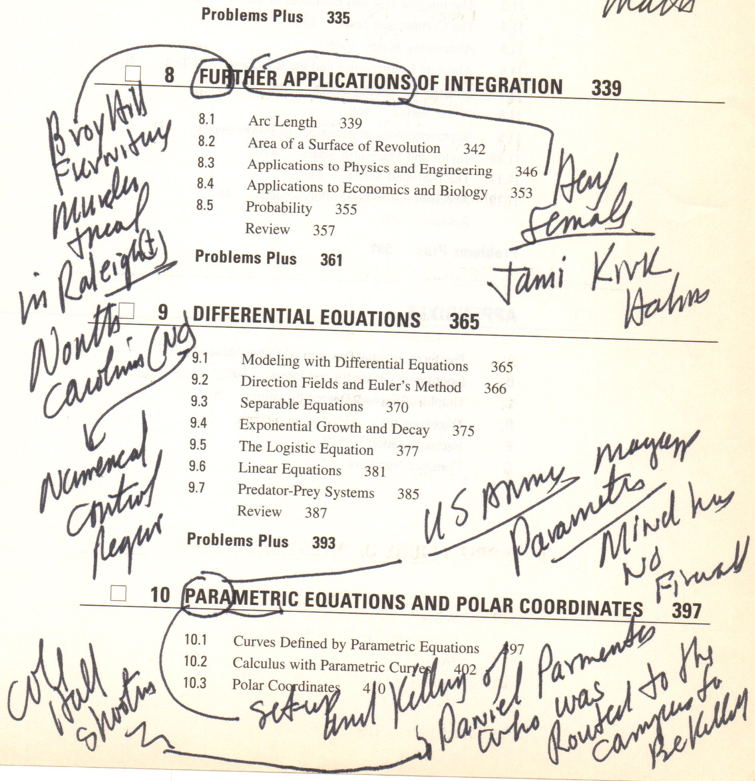 Problems Plus 335
8 FURTHER APPLICATIONS OF INTEGRATION 339
8.1 Arc Length 339
8.2 Area of a Surface of Revolution 342
8.3 Applications to Physics and Engineering 346
8.4 Applications to Economics and Biology 353
8.5 Probability 355
Review 357
Problems Plus 361
BroyHill
Furniture
Murder
in Raleigh(t)
North
Carolina (NC)
Numerical
Control
female
Jami Kirk
Hahns
9 DIFFERENTIAL EQUATIONS 365
9.1 Modeling with Differential Equations 365
9.2 Direction Fields and Euler's Method 366
9.3 Separable Equations 370
9.4 Exponential Growth and Decay 375
9.5 The Logistic Equation 377
9.6 Linear Equations 381
9.7 Predator-Prey Systems 385
Review 387
Problems Plus 393
US Army
Parameters
Mind has
No
Firewall
10 PARAMETRIC EQUATIONS AND POLAR COORDINATES 397
10.1 Curves Defined by Parametric Equations 397
10.2 Calculus with Parametric Curves 402
10.3 Polar Coordinates 410
Cole
Hall
Shooting
setup and Killing of
Daniel Parmenter
who was
Routed to the
campus to
Be Killed